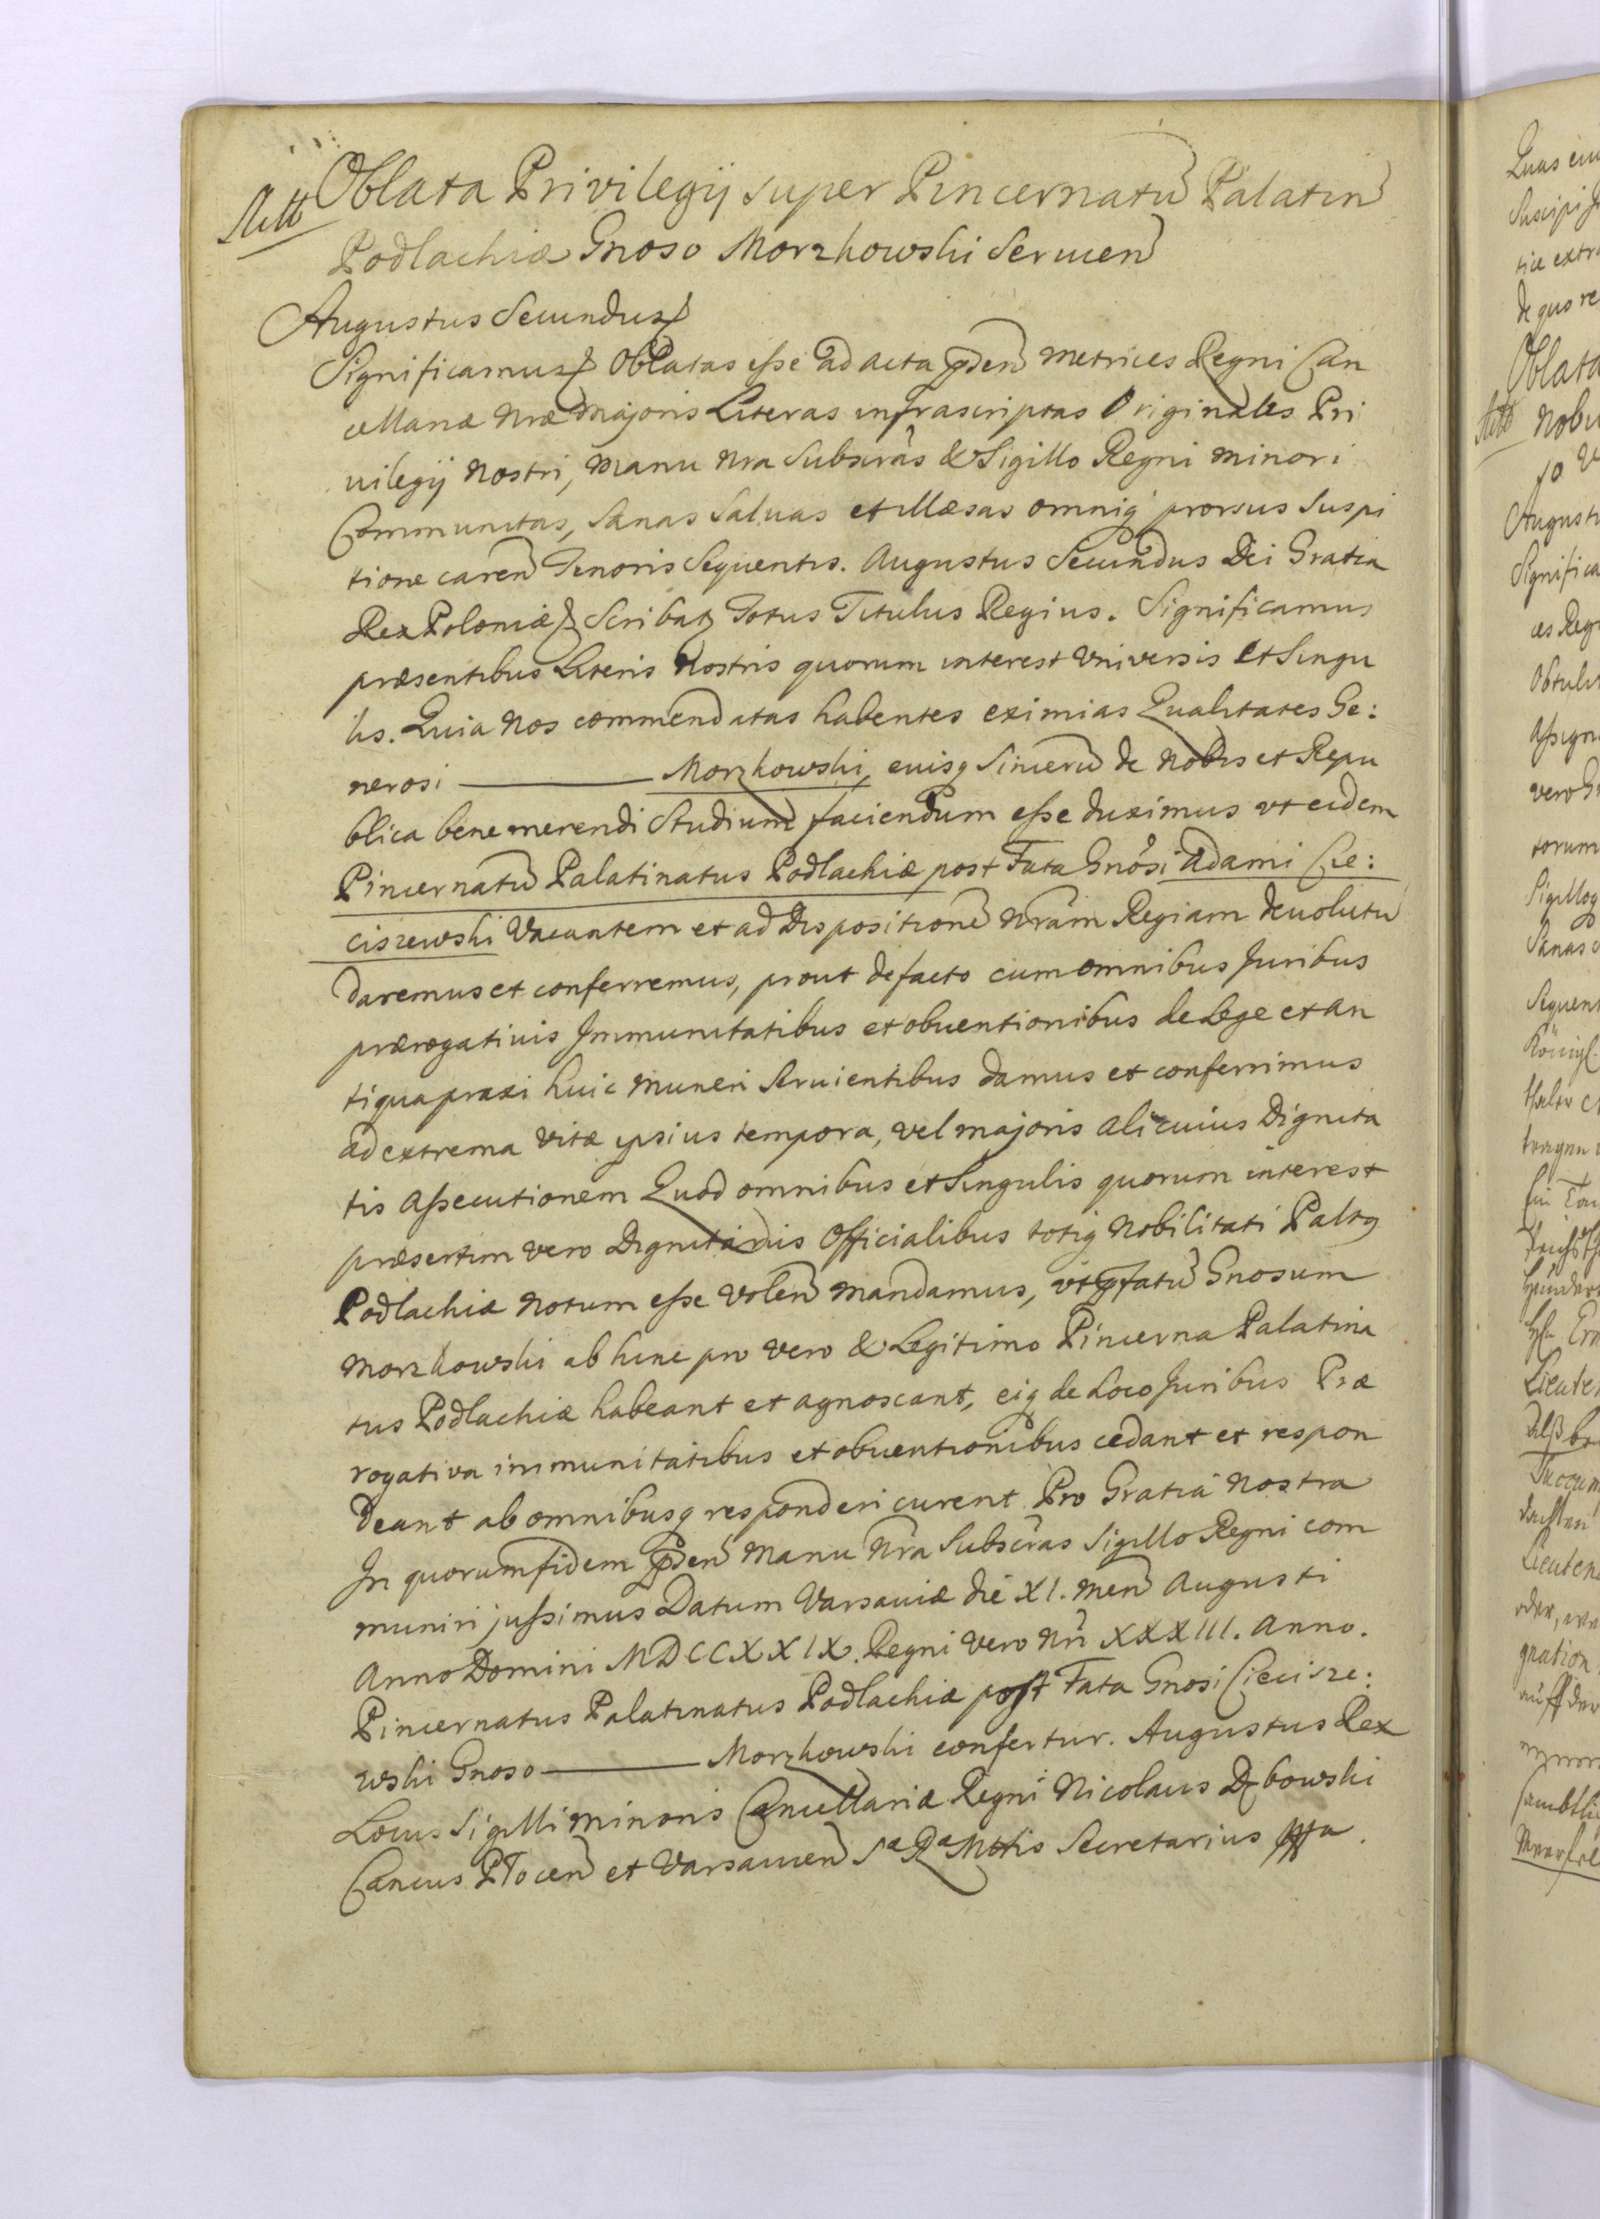 Oblata Privilegij super Pincernatũ Palatin
Podlachiæ Gnoso Morzkowski Seruien
Augustus Secundus
Significamus Oblatas esse ad acta pñden Metrices Regni Can
cellariæ Nræ Majoris Literas infrascriptas Originales Pri
uilegij Nostri, Manu Nra Subscras & Sigillo Regni Minori
Communitas, Sanas Saluas et illæsas omniq prorsus Suspi
tione caren Tenoris Sequentis. Augustus Secundus Dei Gratia
Rex Poloniæ Scribat Totus Titulus Regius. Significamus
præsentibus Literis Nostris quorum interest Vniversis et Singu
lis. Quia Nos commendatas habentes eximias Qualitates Ge:
nerosi ——— Morzkowski, euisq Sincerũ de Nobis et Repu
blica bene merendi Studium faciendum esse duximus vt eidem
Pincernatũ Palatinatus Podlachiæ post Fata Gnosi Adami Cie:
ciszewski Vacantem et ad Dispositionẽ Nram Regiam deuolutũ
daremus et conferremus, prout de facto cum omnibus Juribus
prærogativis Immunitatibus et obuentionibus de Lege et an
tiqua praxi huic muneri Seruientibus damus et conferimus
ad extrema vitæ ipsius tempora, vel majoris alicuius Dignita
tis assecutionem Quod omnibus et Singulis quorum interest
præsertim vero Dignitariis Officialibus totiq Nobilitati Paltq
Podlachiæ Notum esse Volen mandamus, vt pfatũ Gnosum
Morzkowski ab hinc pro vero & Legitimo Pincerna Palatina
tus Podlachiæ habeant et agnoscant, eiq de Loco Juribus Præ
rogativa immunitatibus et obuentionibus cedant et respon
deant ab omnibusq responderi curent Pro Gratia Nostra
In quorum fidem pñden Manu Nra Subscras Sigillo Regni com
muniri jussimus Datum Varsauiæ die XI. Men Augusti
Anno Domini MDCCXXIX. Regni Vero Nri XXXIII. Anno.
Pincernatus Palatinatus Podlachiæ post Fata Gnosi Ciecisze:
wski Gnoso ——— Morzkowski confertur. Augustus Rex
Locus Sigilli minoris Cancellariæ Regni Nicolaus Dębowski
Cancus Plocen et Varsauien Sa Ra Mttis Secretarius